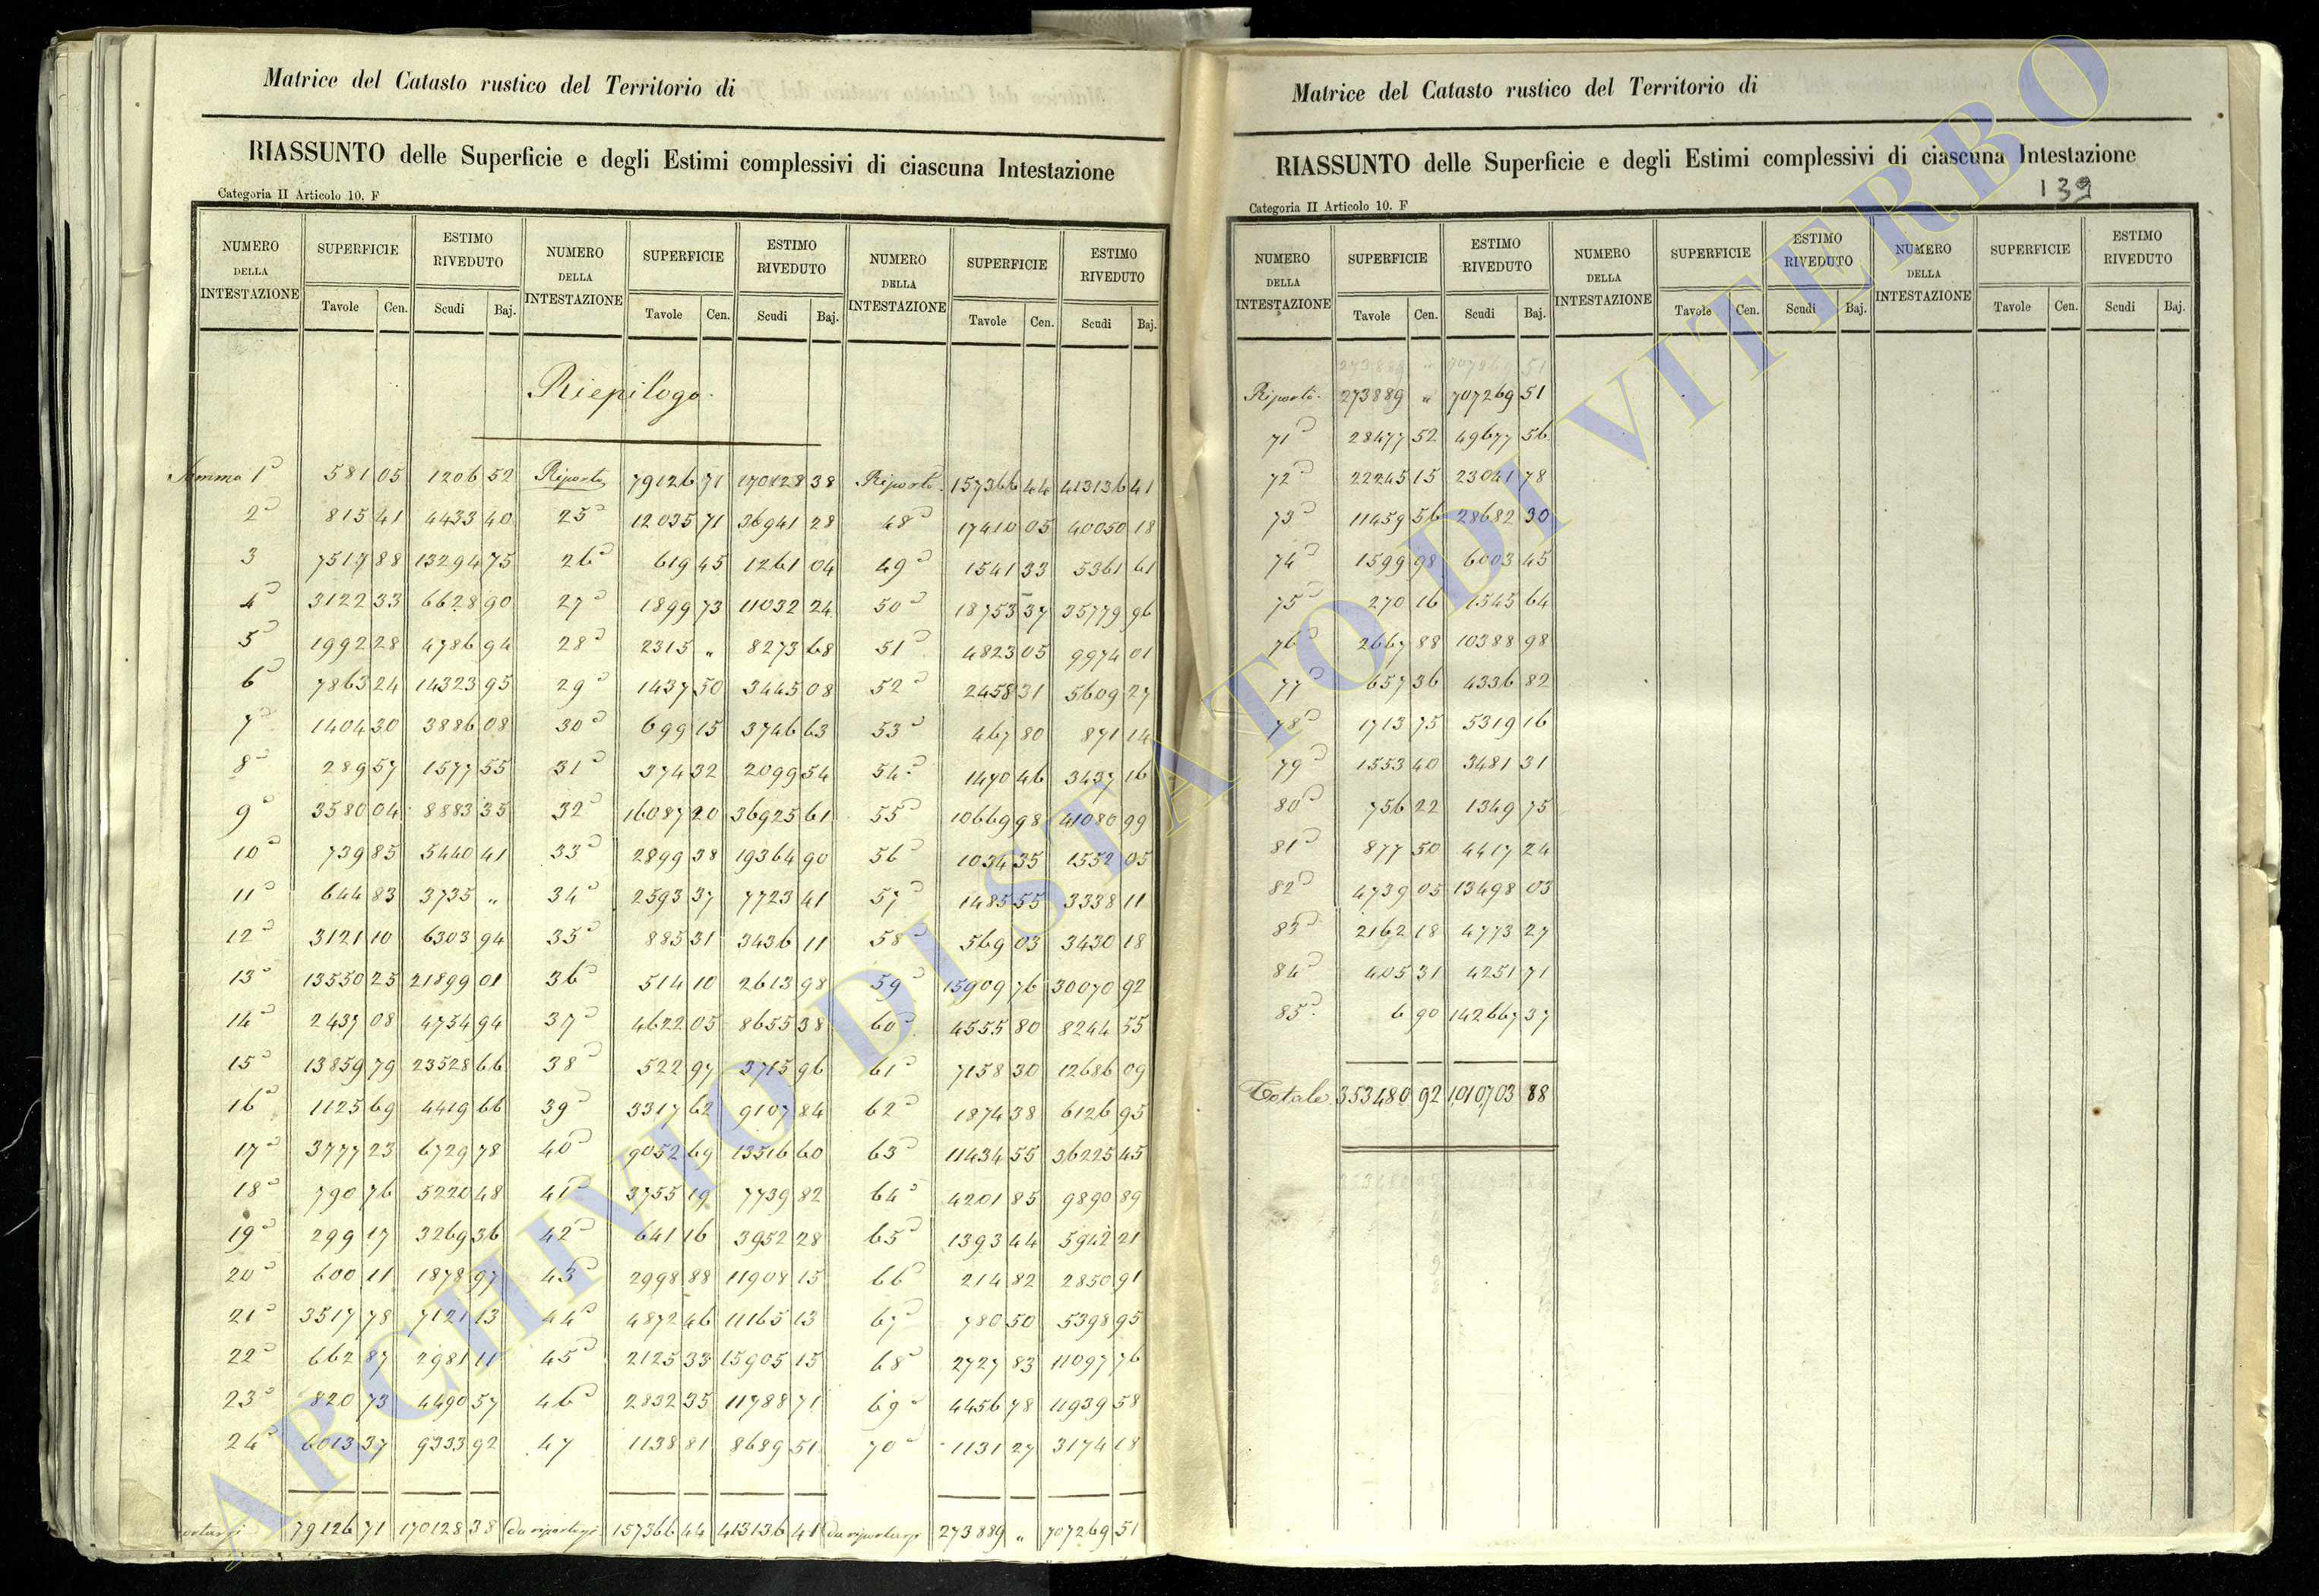 Matrice del Catasto rustico del Territorio di
RIASSUNTO delle Superficie e degli Estimi complessivi di ciascuna Intestazione
Categoria II Articolo 10. F
NUMERO DELLA INTESTAZIONE SUPERFICIE ESTIMO RIVEDUTO NUMERO DELLA INTESTAZIONE SUPERFICIE ESTIMO RIVEDUTO NUMERO DELLA INTESTAZIONE SUPERFICIE ESTIMO RIVEDUTO
Tavole Cen. Scudi Baj. Tavole Cen. Scudi Baj. Tavole Cen. Scudi Baj.
Riepilogo
Somma 1a 581 05 1206 52 Riporto 79126 71 170128 38 Riporto 157366 44 413136 41
2a 815 41 4433 40 25a 12035 71 36941 28 48a 17410 05 40050 18
3 7517 88 13294 75 26a 619 45 1261 04 49a 1541 33 5361 61
4a 3122 33 6628 90 27a 1899 73 11032 24 50a 18753 37 35779 96
5a 1992 28 4786 94 28a 2315 „ 8273 68 51a 4823 05 9974 01
6a 7863 24 14323 95 29a 1437 50 3445 08 52a 2458 31 5609 27
7a 1404 30 3886 08 30a 699 15 3746 63 53a 467 80 871 14
8a 289 57 1577 55 31a 374 32 2099 54 54a 1470 46 3437 16
9a 3580 04 8883 35 32a 16087 20 36925 61 55a 10669 98 41080 99
10a 739 85 5440 41 33a 2899 38 19364 90 56a 1034 35 1552 05
11a 644 83 3735 „ 34a 2593 37 7723 41 57a 1485 55 3338 11
12a 3121 10 6303 94 35a 885 31 3436 11 58a 569 03 3430 18
13a 13550 25 21899 01 36a 514 10 2613 98 59a 15909 76 30070 92
14a 2437 08 4754 94 37a 4622 05 8655 38 60a 4555 80 8244 55
15a 13859 79 23528 66 38a 522 97 3715 96 61a 7158 30 12686 09
16a 1125 69 4419 66 39a 3317 62 9107 84 62a 1874 38 6126 95
17a 3777 23 6729 78 40a 9052 69 13516 60 63a 11434 55 36225 45
18a 790 76 5220 48 41a 3755 19 7739 82 64a 4201 85 9890 89
19a 299 17 3269 36 42a 641 16 3952 28 65a 1393 44 5942 21
20a 600 11 1878 97 43a 2998 88 11908 15 66a 214 82 2850 91
21a 3517 78 7121 13 44a 4872 46 11165 13 67a 780 50 5398 95
22a 662 87 2981 11 45a 2125 33 15905 15 68a 2727 83 11097 76
23a 820 73 4490 57 46a 2832 35 11788 71 69a 4456 78 11939 58
24a 6013 37 9333 92 47 1138 81 8689 51 70a 1131 27 3174 18
79126 71 170128 38 Da riportarsi 157366 44 413136 41 Da riportarsi 273889 „ 707269 51
Matrice del Catasto rustico del Territorio di
RIASSUNTO delle Superficie e degli Estimi complessivi di ciascuna Intestazione
139
Categoria II Articolo 10. F
NUMERO DELLA INTESTAZIONE SUPERFICIE ESTIMO RIVEDUTO NUMERO DELLA INTESTAZIONE SUPERFICIE ESTIMO RIVEDUTO NUMERO DELLA INTESTAZIONE SUPERFICIE ESTIMO RIVEDUTO
Tavole Cen. Scudi Baj. Tavole Cen. Scudi Baj. Tavole Cen. Scudi Baj.
273889 „ 707269 51
Riporto 273889 „ 707269 51
71a 28477 52 49677 56
72a 22245 15 23041 78
73a 11459 56 28682 30
74a 1599 98 6003 45
75a 270 16 1545 64
76a 2667 88 10388 98
77a 657 36 4336 82
78a 1713 75 5319 16
79a 1553 40 3481 31
80a 756 22 1349 75
81a 877 50 4417 24
82a 4739 05 13498 03
83a 2162 18 4773 27
84a 405 31 4251 71
85a 6 90 142667 37
Totale 353480 92 1010703 88
ARCHIVIO DI STATO DI VITERBO